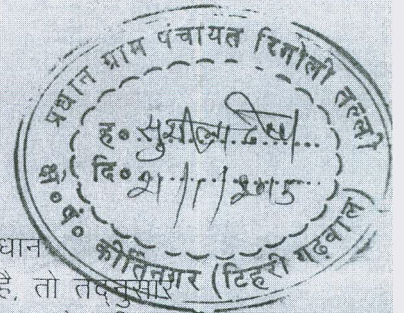 प्रधान ग्राम पंचायत रिगोली तल्ली
ह० सुशीला देवी
दि०
क्षे० पं० कीर्तिनगर (टिहरी गढ़वाल)
धान
है, तो तद्नुसार